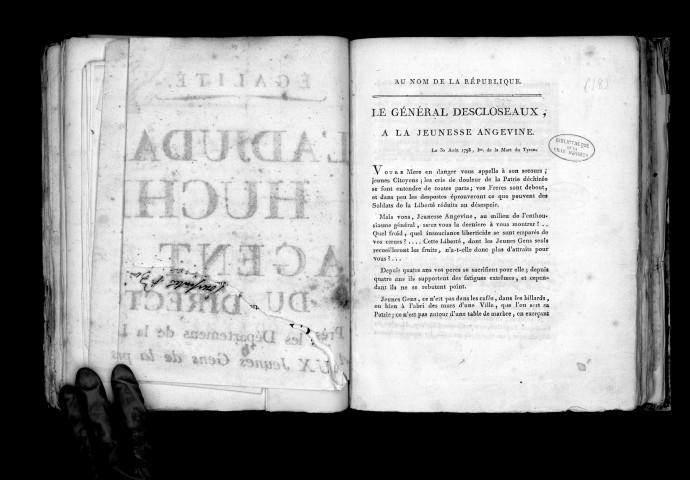 ÉGALITÉ.
L'ADJUDA
HUCH
AGENT
DU DIRECT
Près les Départemens de la
AUX Jeunes Gens de la
AU NOM DE LA RÉPUBLIQUE.
LE GÉNÉRAL DESCLOSEAUX,
A LA JEUNESSE ANGEVINE.
BIBLIOTHEQUE
DE LA
VILLE D'ANGERS
VOTRE Mere en danger vous appelle à son secours ;
jeunes Citoyens ; les cris de douleur de la Patrie déchirée
se font entendre de toutes parts ; vos Freres sont debout,
et dans peu les despotes éprouveront ce que peuvent des
Soldats de la Liberté réduits au désespoir.
Mais vous, Jeunesse Angevine, au milieu de l'enthou-
siasme général, serez vous la derniere à vous montrer ? . .
Quel froid, quel insouciance liberticide se sont emparés de
vos cœurs ? . . . . Cette Liberté, dont les Jeunes Gens seuls
recueilleront les fruits, n'a-t-elle donc plus d'attraits pour
vous ? . . .
Depuis quatre ans vos peres se sacrifient pour elle ; depuis
quatre ans ils supportent des fatigues extrêmes, et cepen-
dant ils ne se rebutent point.
Jeunes Gens, ce n'est pas dans les cafés, dans les billards,
ou bien à l'abri des murs d'une Ville, que l'on sert sa
Patrie ; ce n'est pas autour d'une table de marbre, en exerçant